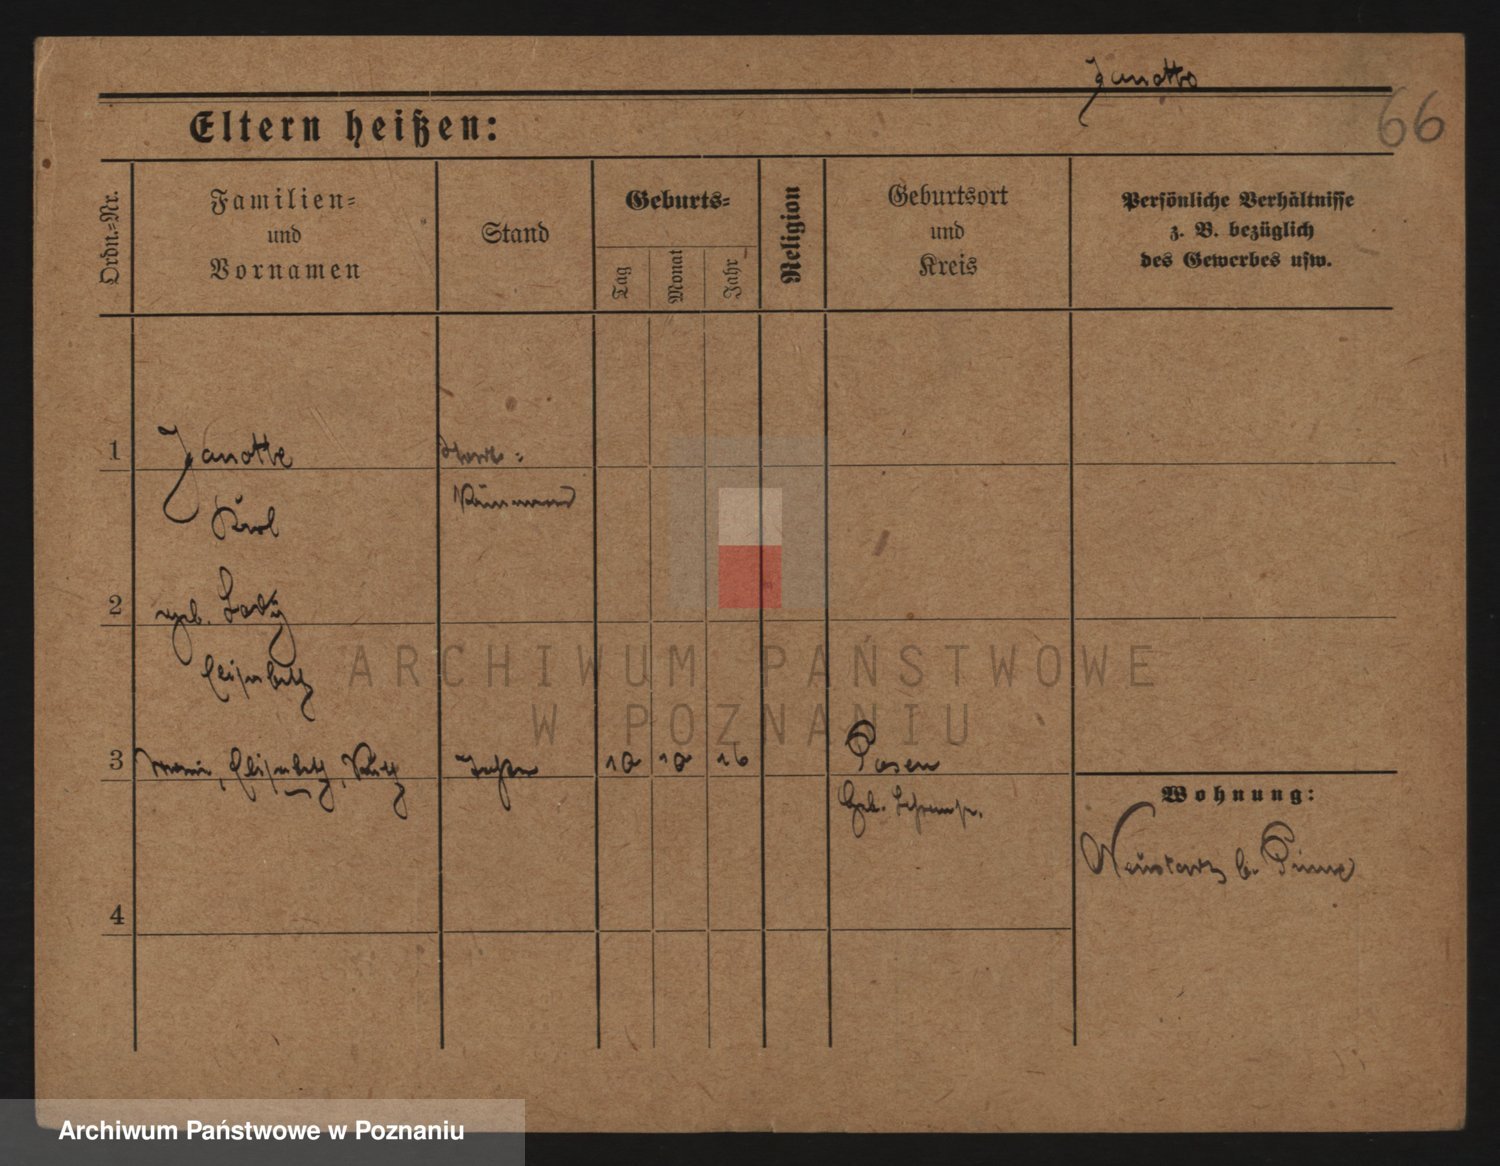 Janotte
66
Eltern heißen:
Ordn.=Nr.
Familien=
und
Vornamen
Stand
Geburts=
Tag
Monat
Jahr
Religion
Geburtsort
und
Kreis
Persönliche Verhältnisse
z. B. bezüglich
des Gewerbes usw.
1
Janotte
Karl
2
geb.
Elisabeth
3
Marie, Elisabeth, Ruth
Tochter
10
10
16
Posen
Geb.
Wohnung:
b. Pinne
4
ARCHIWUM PAŃSTWOWE
W POZNANIU
Archiwum Państwowe w Poznaniu